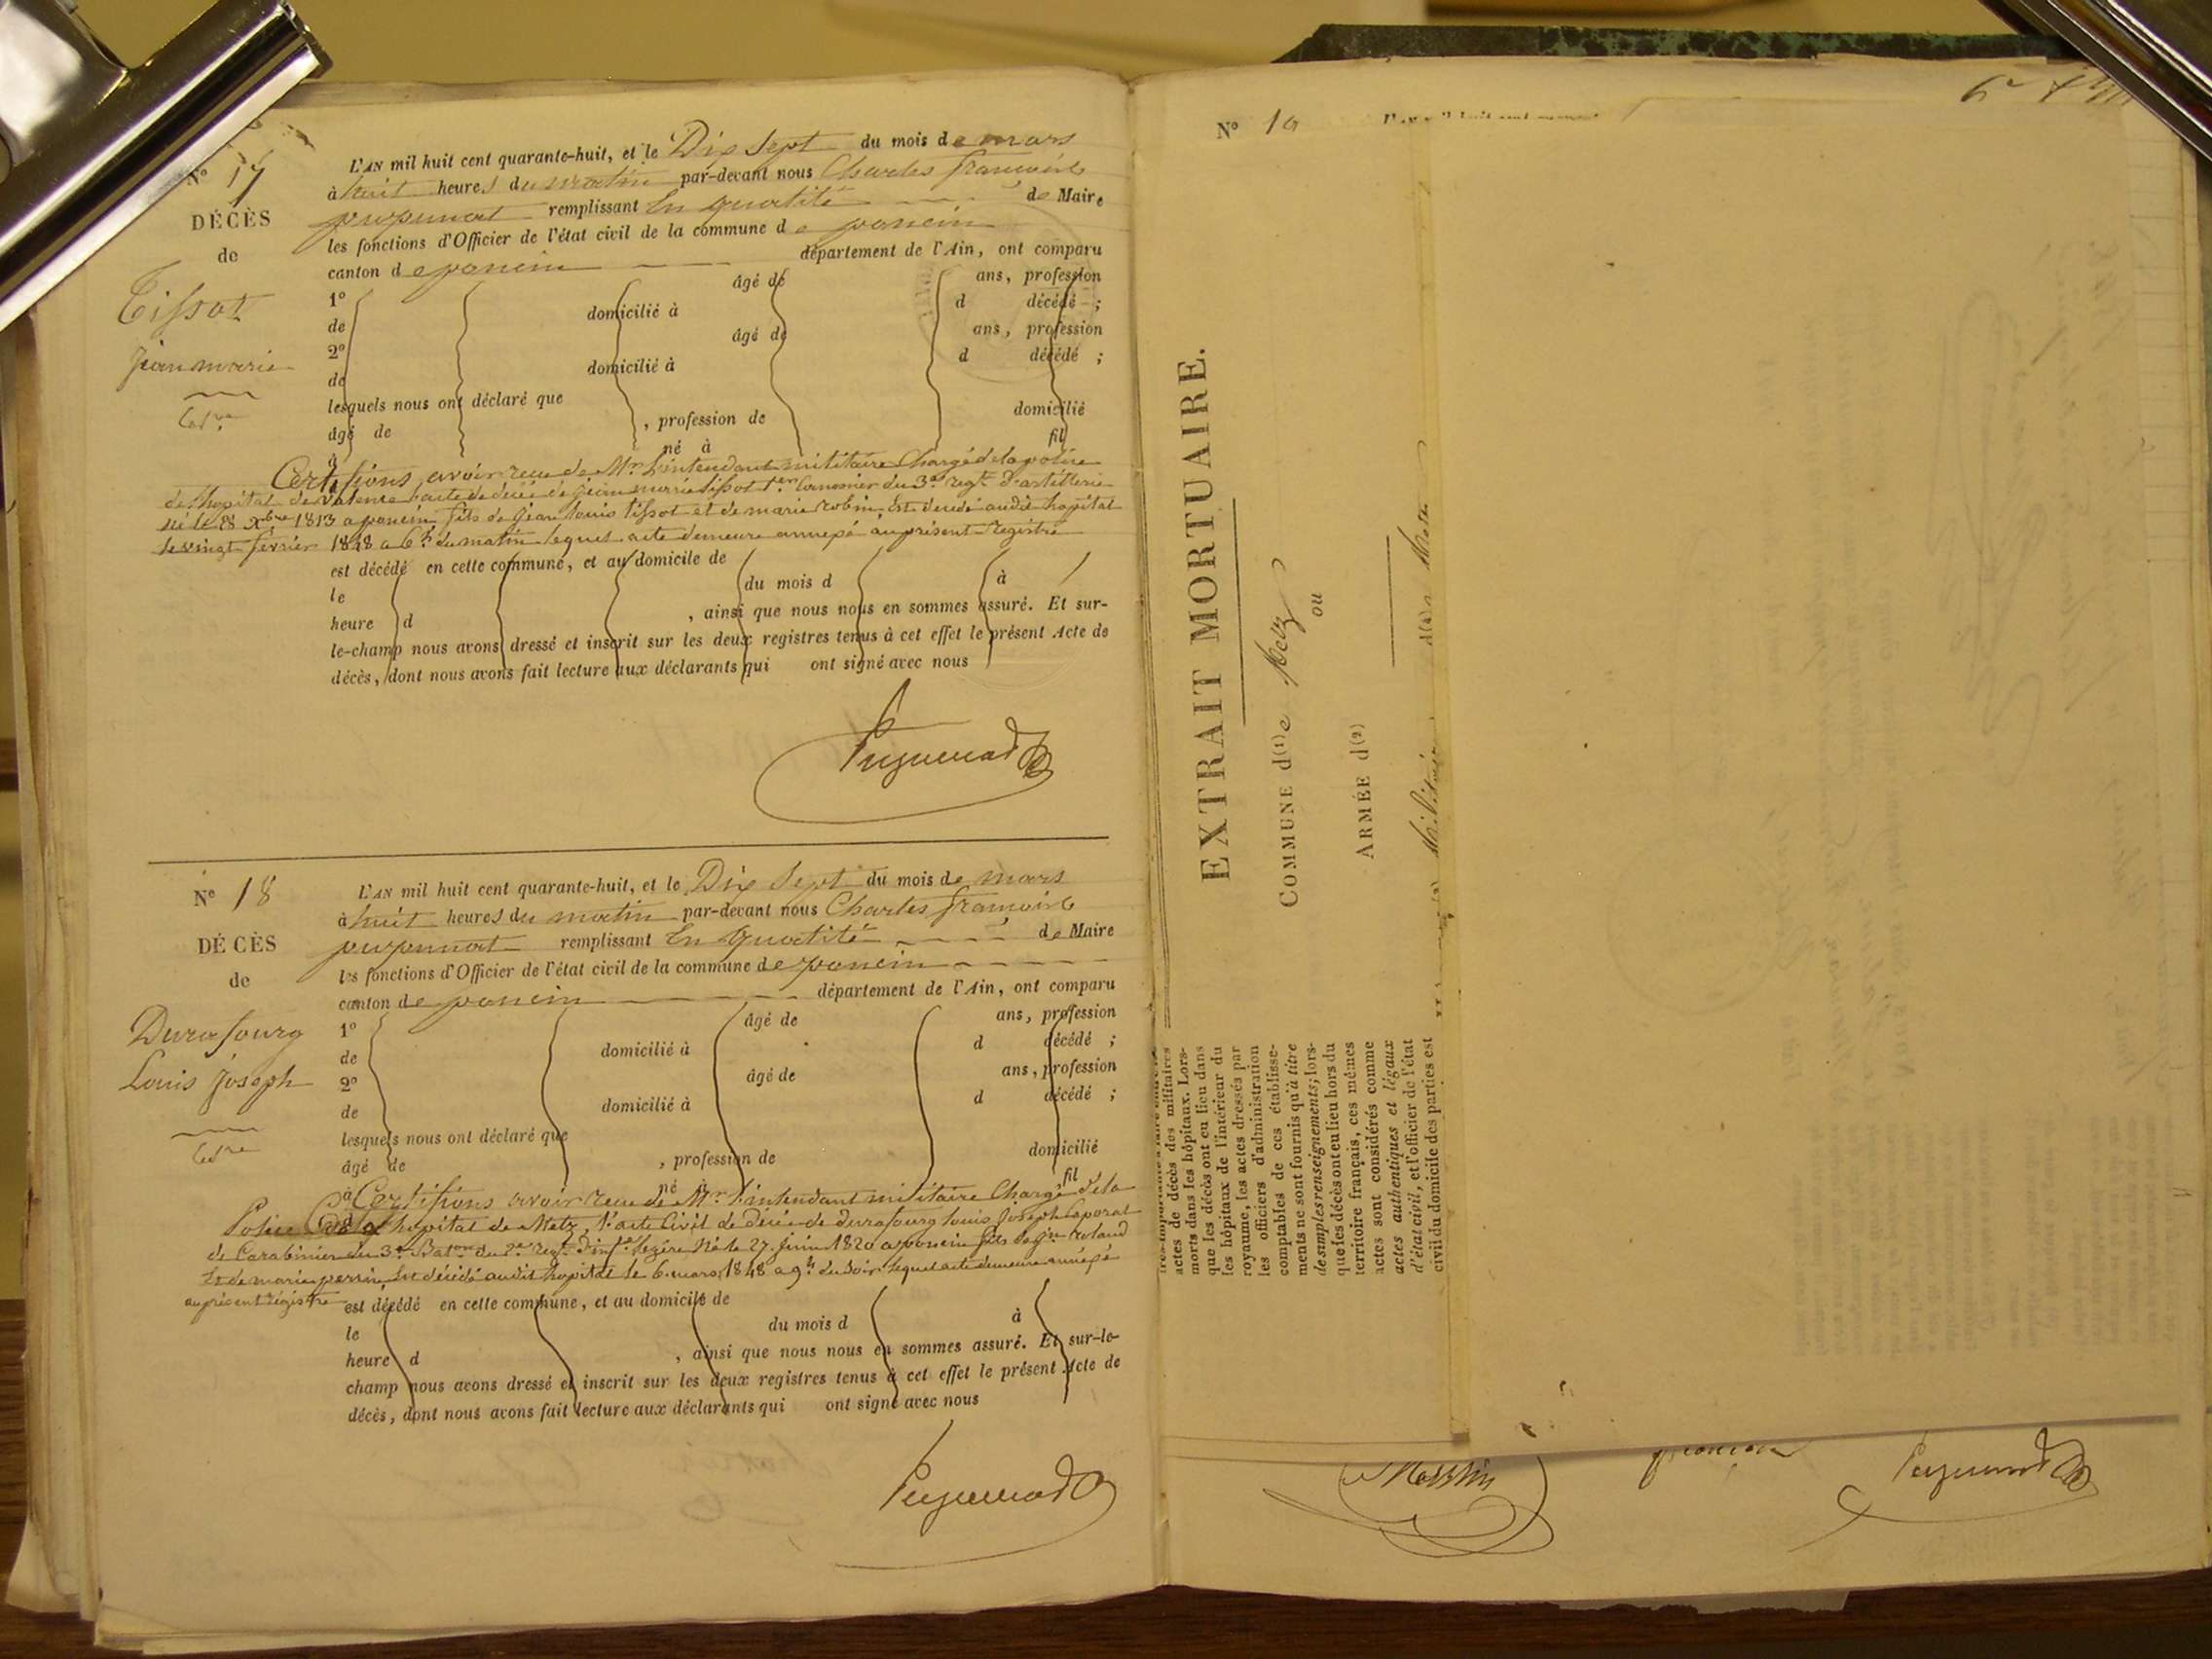 N° 17
DÉCÈS
de
Tissot
jean marie
L'AN mil huit cent quarante-huit, et le Dix Sept du mois de mars
à huit heures du matin par-devant nous Charles françois
puypunat remplissant En qualité de Maire
les fonctions d'Officier de l'état civil de la commune de poncin
canton de poncin département de l'Ain, ont comparu
1° âgé de ans, profession
de domicilié à d décédé ;
2° âgé de ans, profession
de domicilié à d décédé ;
lesquels nous ont déclaré que
âgé de , profession de domicilié
à né à fil
Certifions avoir recu de Mr. L'intendant militaire Chargé de la police
de l'hopital de Valence l'acte de décés de jean marie tissot 1er Canonier du 3e regt. d'artillerie
né le 18 Xbre 1813 a poncin fils de jean louis tissot et de marie robin, Est decedé audit hopital
le vingt fevrier 1848 a 6h du matin lequel acte demeure annexé au présent registre
est décédé en cette commune, et au domicile de
le du mois d à
heure d , ainsi que nous nous en sommes assuré. Et sur-
le-champ nous avons dressé et inscrit sur les deux registres tenus à cet effet le présent Acte de
décès, dont nous avons fait lecture aux déclarants qui ont signé avec nous
N° 18
DÉCÈS
de
Durafourg
Louis joseph
L'AN mil huit cent quarante-huit, et le Dix Sept du mois de mars
à huit heures du matin par-devant nous Charles françois
puypunat remplissant En qualité de Maire
les fonctions d'Officier de l'état civil de la commune de poncin
canton de poncin département de l'Ain, ont comparu
1° âgé de ans, profession
de domicilié à d décédé ;
2° âgé de ans, profession
de domicilié à d décédé ;
lesquels nous ont déclaré que
âgé de , profession de domicilié
à né à fil
Certifions avoir recu de Mr. l'intendant militaire Chargé de la
Police de l'hopital de Metz, l'acte Civil de décés de durafourg louis joseph Caporal
de Carabinier du 3e Baton. du 2e regt. d'infie légére né le 27 juin 1820 a poncin fils de jn roland
Et de marie perrin Est décédé audit hopital le 6 mars 1848 a 9h du soir lequel acte demeure annexé
au présent régistre
est décédé en cette commune, et au domicile de
le du mois d à
heure d , ainsi que nous nous en sommes assuré. Et sur-le-
champ nous avons dressé et inscrit sur les deux registres tenus à cet effet le présent Acte de
décès, dont nous avons fait lecture aux déclarants qui ont signé avec nous
N° 19
EXTRAIT MORTUAIRE.
COMMUNE d(1)e Metz
ou
ARMÉE d(2)
Militaire d(4)e Metz
actes de décès des militaires
morts dans les hôpitaux. Lors-
que les décès ont eu lieu dans
les hôpitaux de l'intérieur du
royaume, les actes dressés par
les officiers d'administration
comptables de ces établisse-
ments ne sont fournis qu'à titre
de simples renseignements; lors-
que les décès ont eu lieu hors du
territoire français, ces mêmes
actes sont considérés comme
actes authentiques et légaux
d'état civil, et l'officier de l'état
civil du domicile des parties est